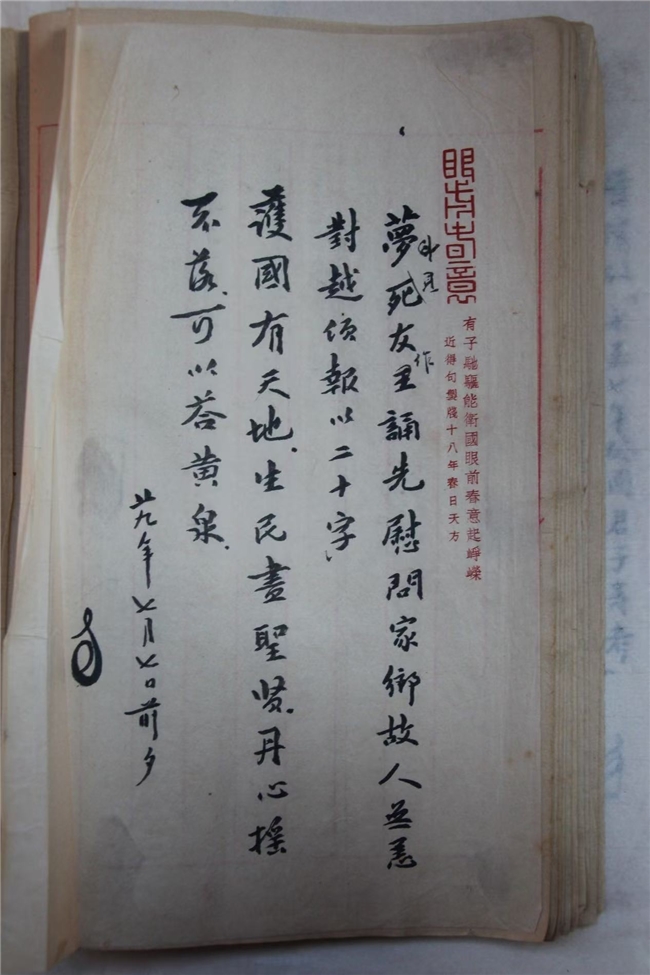 眼前春意
有子馳驅能衛國眼前春意起崢嶸
近得句製牋十八年春日天方
夢死友誦先慰問家鄉故人并悉
作
對越報以二十字
護國有天地、生民盡聖賢、丹心搖
不落、可以荅黃泉、
廿九年七月七日前夕